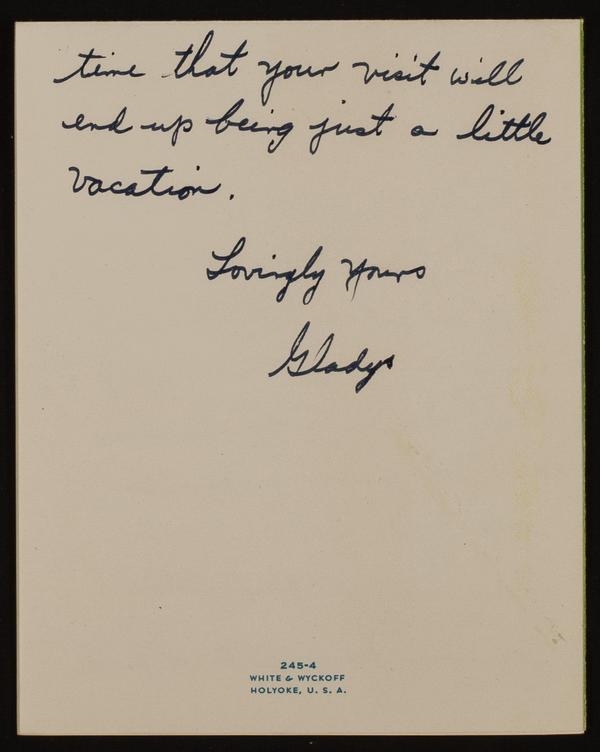 time that your visit will
end up being just a little
vacation.
Lovingly Yours
Gladys
245-4
WHITE & WYCKOFF
HOLYOKE, U. S. A.